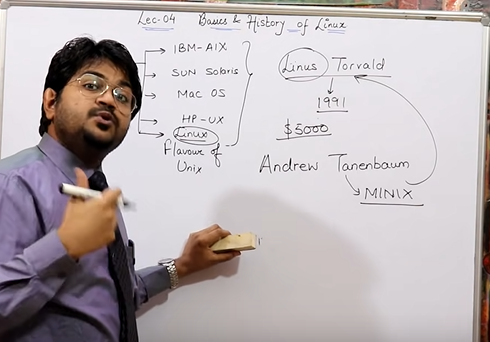 Lec-04 Basics & History of Linux
IBM-AIX
SUN Solaris
Mac OS
HP-UX
Linux
Flavour of
Unix
Linus Torvald
1991
$5000
Andrew Tanenbaum
MINIX